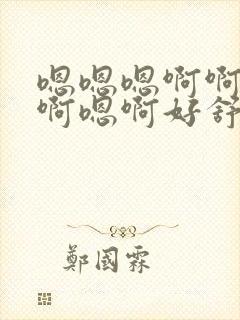 嗯嗯嗯啊啊
啊嗯啊好舒
鄭國霖